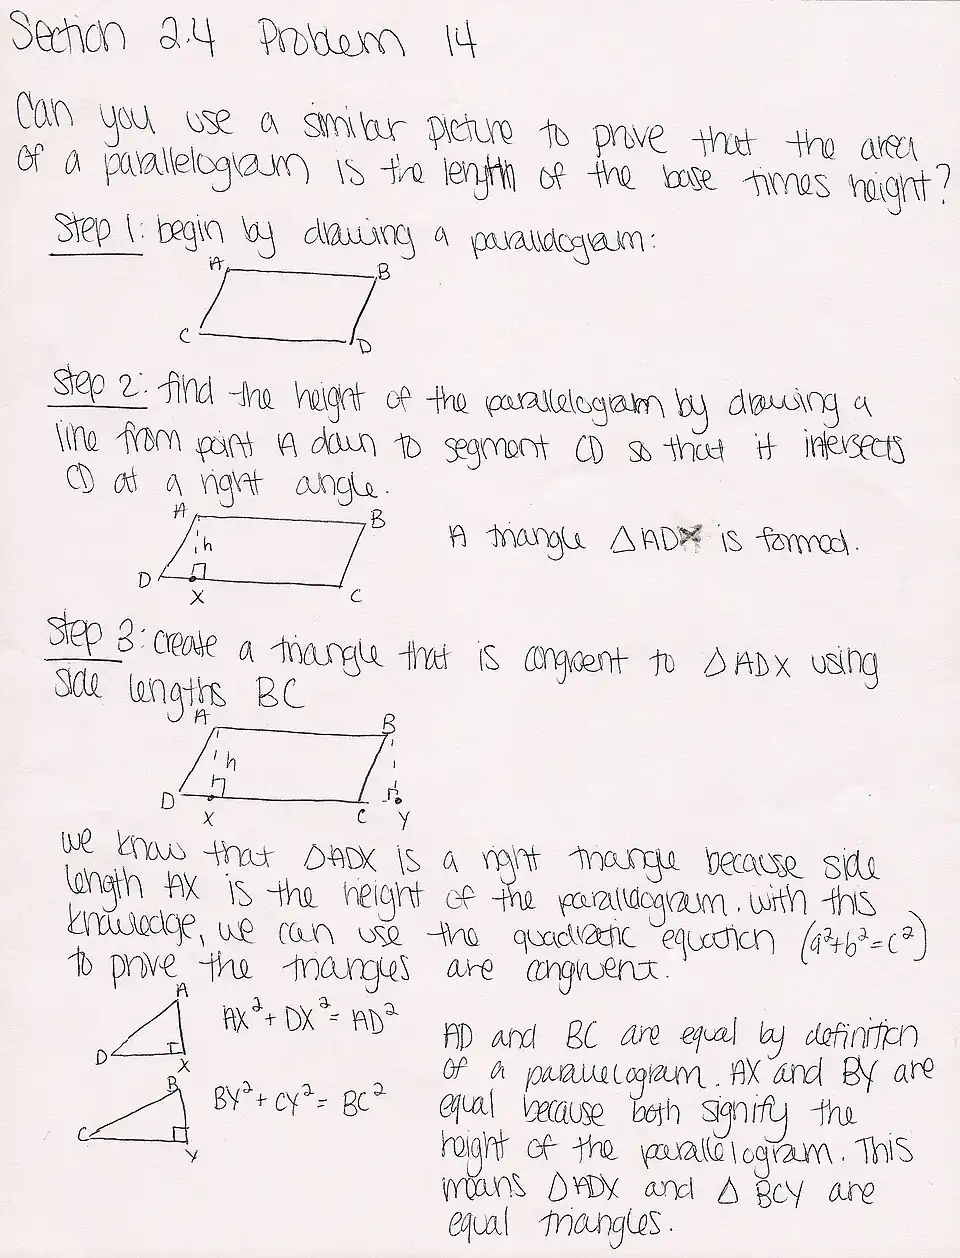 Section 2.4 Problem 14
Can you use a similar picture to prove that the area
of a parallelogram is the length of the base times height?
Step 1: begin by drawing a parallelogram:
A B
C D
Step 2: find the height of the parallelogram by drawing a
line from point A down to segment CD so that it intersects
CD at a right angle.
A B
h
D X C
A triangle △ADX is formed.
Step 3: create a triangle that is congruent to △ADX using
side lengths BC
A B
h
D X C Y
we know that △ADX is a right triangle because side
length AX is the height of the parallelogram. With this
knowledge, we can use the quadratic equation (a²+b²=c²)
to prove the triangles are congruent.
A
D X
AX²+DX²=AD²
B
C Y
BY²+CY²=BC²
AD and BC are equal by definition
of a parallelogram. AX and BY are
equal because both signify the
height of the parallelogram. This
means △ADX and △BCY are
equal triangles.